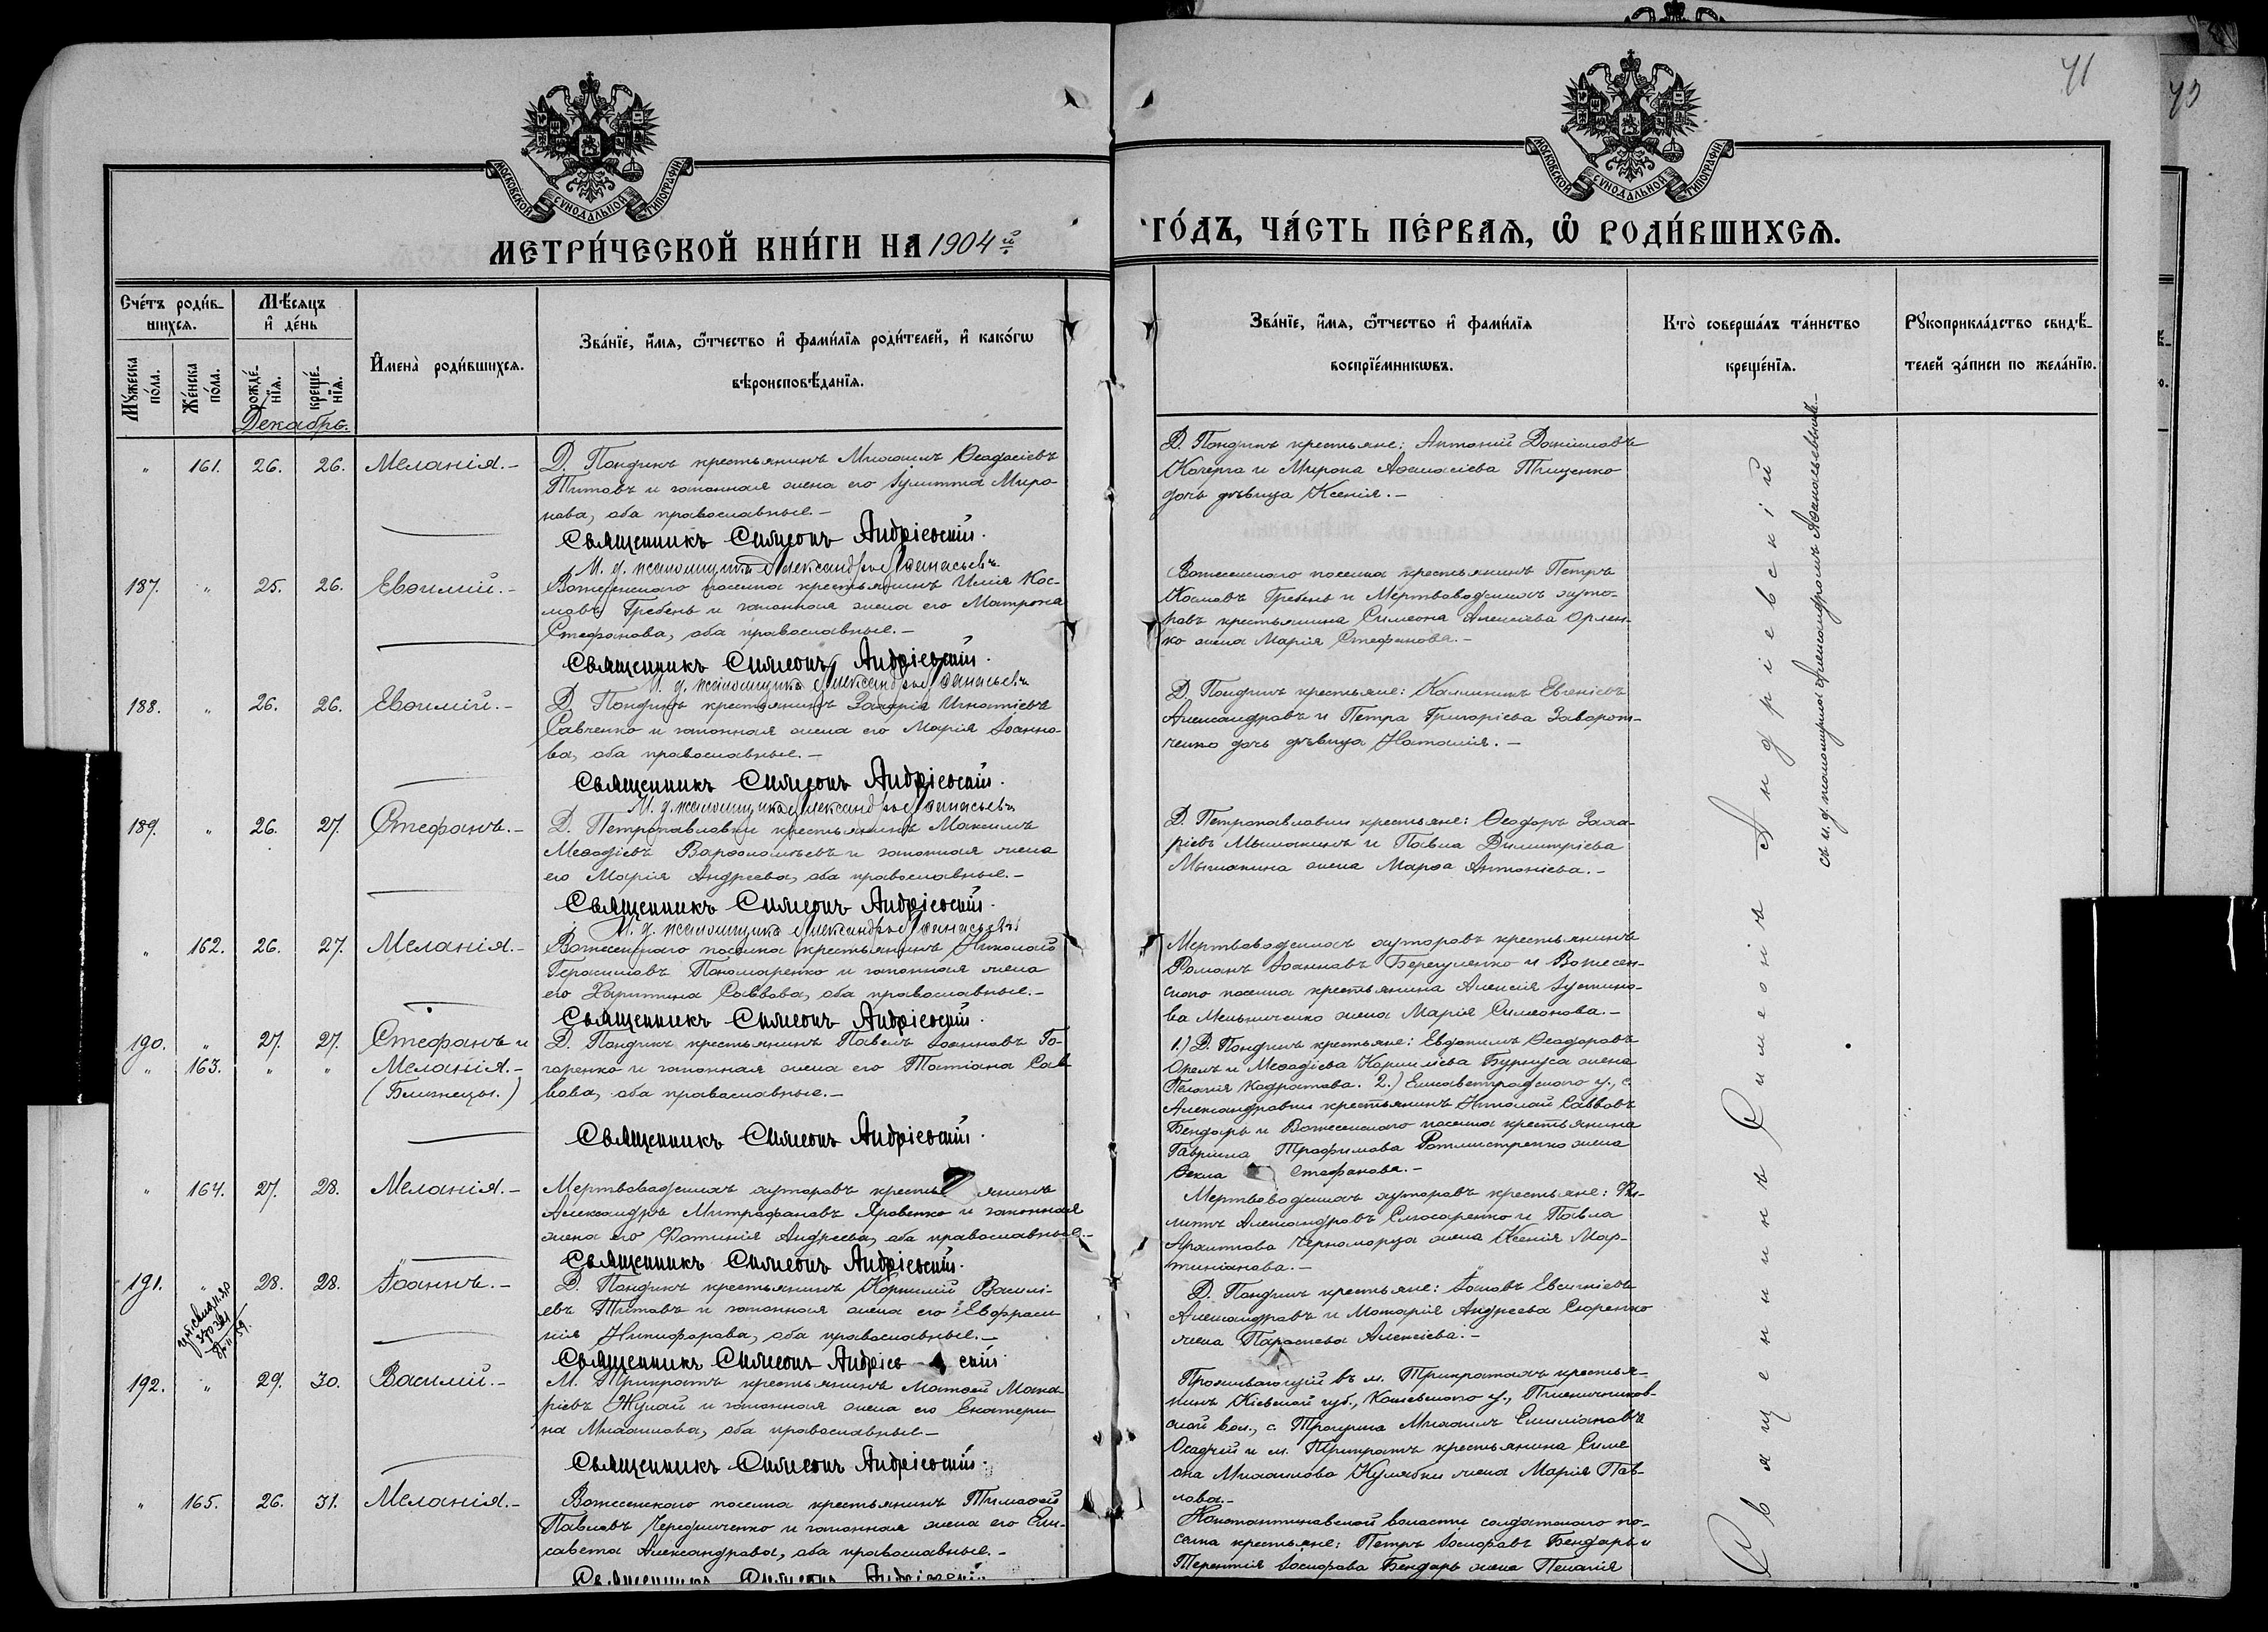 41
43
МОСКОВСКОЙ СѴНОДАЛЬНОЙ ТИПОГРАФІИ
МОСКОВСКОЙ СѴНОДАЛЬНОЙ ТИПОГРАФІИ
МЕТРИ́ЧЕСКОЙ КНИ́ГИ НА 1904й
ГО́ДЪ, ЧА́СТЬ ПЕ́РВАѦ, Ѡ РОДИ́ВШИХСѦ.
Сче́тъ роди́в-
шихсѧ.
Мꙋ́жеска по́ла.
Же́нска по́ла.
Мѣ́сѧцъ
и҆ де́нь
рожде́-
нїѧ.
креще́-
нїѧ.
И҆мена̀ роди́вшихсѧ.
Зва́нїе, и҆́мѧ, ѻ҆́тчество и҆ фами́лїѧ роди́телей, и҆ како́гѡ
вѣроисповѣ́данїѧ.
Зва́нїе, и҆́мѧ, ѻ҆́тчество и҆ фами́лїѧ
воспрїе́мникѡвъ.
Кто̀ соверша́лъ та́инство
креще́нїѧ.
Рꙋкоприкла́дство свидѣ́-
телей за́писи по жела́нїю.
Декабрь.
" 161. 26. 26. Меланія.-
Д. Пондикъ крестьянинъ Михаилъ Ѳеодосіевъ
Титовъ и законная жена его Іулитта Миро-
нова, оба православные.-
Священникъ Симеонъ Андріевскій.
И. д. псаломщика Александръ Аѳанасьевъ
Д. Пондикъ крестьяне: Антоній Даніиловъ
Кочерга и Мирона Аѳанасіева Тищенко
дочь дѣвица Ксенія.-
187. " 25. 26. Евѳимій.-
Вознесенскаго поселка крестьянинъ Илія Кос-
мовъ Гребень и законная жена его Матрона
Стефанова, оба православные.-
Священникъ Симеонъ Андріевскій.
И. д. псаломщика Александръ Аѳанасьевъ
Вознесенскаго поселка крестьянинъ Петръ
Космовъ Гребень и Мертвоводскихъ хуто-
ровъ крестьянина Симеона Алексіева Орлен-
ко жена Марія Стефанова.-
188. " 26. 26. Евѳимій.-
Д. Пондикъ крестьянинъ Захарія Игнатіевъ
Савченко и законная жена его Марія Іоанно-
ва, оба православные.-
Священникъ Симеонъ Андріевскій.
И. д. псаломщика Александръ Аѳанасьевъ
Д. Пондикъ крестьяне: Каллиникъ Евгеніевъ
Александровъ и Петра Григоріева Заворот-
ченко дочь дѣвица Наталія.-
189. " 26. 27. Стефанъ.-
Д. Петропавловки крестьянинъ Максимъ
Меѳодіевъ Варѳоломѣевъ и законная жена
его Марія Андреева, оба православные.-
Священникъ Симеонъ Андріевскій.
И. д. псаломщика Александръ Аѳанасьевъ
Д. Петропавловки крестьяне: Ѳеодоръ Заха-
ріевъ Мышакинъ и Павла Димитріева
Мышакина жена Марѳа Антоніева.-
" 162. 26. 27. Меланія.-
Вознесенскаго поселка крестьянинъ Николай
Герасимовъ Пономаренко и законная жена
его Харитина Саввова, оба православные.-
Священникъ Симеонъ Андріевскій.
Мертвоводскихъ хуторовъ крестьянинъ
Романъ Іоанновъ Берегуленко и Вознесен-
скаго поселка крестьянина Алексія Іустино-
ва Мельниченко жена Марія Симеонова.-
190. " 27. 27. Стефанъ и
" 163. " " Меланія.-
(Близнецы.)
Д. Пондикъ крестьянинъ Павелъ Іоанновъ Го-
горенко и законная жена его Татіана Сав-
вова, оба православные.-
Священникъ Симеонъ Андріевскій.
1.) Д. Пондикъ крестьяне: Евдокимъ Ѳеодоровъ
Орелъ и Меѳодіева Корниліева Бурнуса жена
Пелагія Кодратова. 2.) Елисаветградскаго у., с.
Александровки крестьянинъ Николай Саввовъ
Бендаръ и Вознесенскаго поселка крестьянина
Гавріила Трофимова Ротмистренко жена
Ѳекла Стефанова.-
" 164. 27. 28. Меланія.-
Мертвоводскихъ хуторовъ крестьянинъ
Александръ Митрофановъ Яровенко и законная
жена его Фотинія Андреева, оба православные.-
Священникъ Симеонъ Андріевскій.
Мертвоводскихъ хуторовъ крестьяне: Фи-
липпъ Александровъ Слюсаренко и Павла
Архиппова Черноморца жена Ксенія Мар-
тиніанова.-
191. " 28. 28. Іоаннъ.-
Д. Пондикъ крестьянинъ Корнилій Василі-
евъ Титовъ и законная жена его Евфроси-
нія Никифорова, оба православные.-
Священникъ Симеонъ Андріевскій.
Д. Пондикъ крестьяне: Іаковъ Евгеніевъ
Александровъ и Макарія Андреева Сюренко
жена Параскева Алексіева.-
192. " 29. 30. Василій.-
М. Трикратъ крестьянинъ Матѳей Мака-
ріевъ Жулай и законная жена его Екатери-
на Михаилова, оба православные.-
Священникъ Симеонъ Андріевскій.
Проживающій въ м. Трикратахъ крестья-
нинъ Кіевской губ., у., Пшеничников-
ской вол., с. Михаилъ Емиліановъ
Осадчій и м. Трикратъ крестьянина Симе
она Михаилова Кулябки жена Марія Пав-
лова.-
" 165. 26. 31. Меланія.-
Вознесенскаго поселка крестьянинъ Тимоѳей
Павловъ Чередниченко и законная жена его Ели-
савета Александрова, оба православные.-
Священникъ Симеонъ Андріевскій
Константиновской волости солдатскаго по-
селка крестьяне: Петръ Іосифовъ Бендаръ и
Терентія Іосифова Бендаръ жена Пелагія
Священникъ Симеонъ Андріевскій
съ и. д. псаломщика Александромъ Аѳанасьевымъ.-